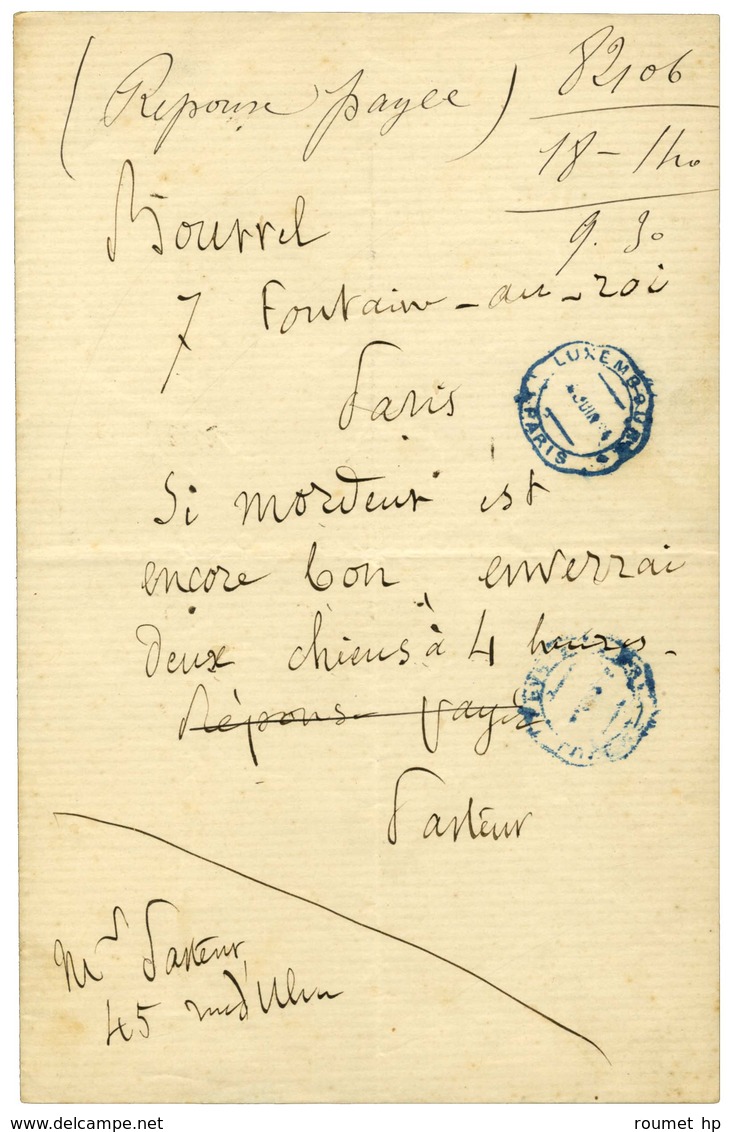 (Réponse payée)
82106
18 - 1 h0
9. 30
Bourrel
7 Fontaine-au-roi
Paris
LUXEMBOURG
PARIS
JUIN
Si mordeur est
encore bon, enverrai
deux chiens à 4 heures.
Réponse payée
Pasteur
Mr Pasteur,
45 rue d'Ulm
roumet hp